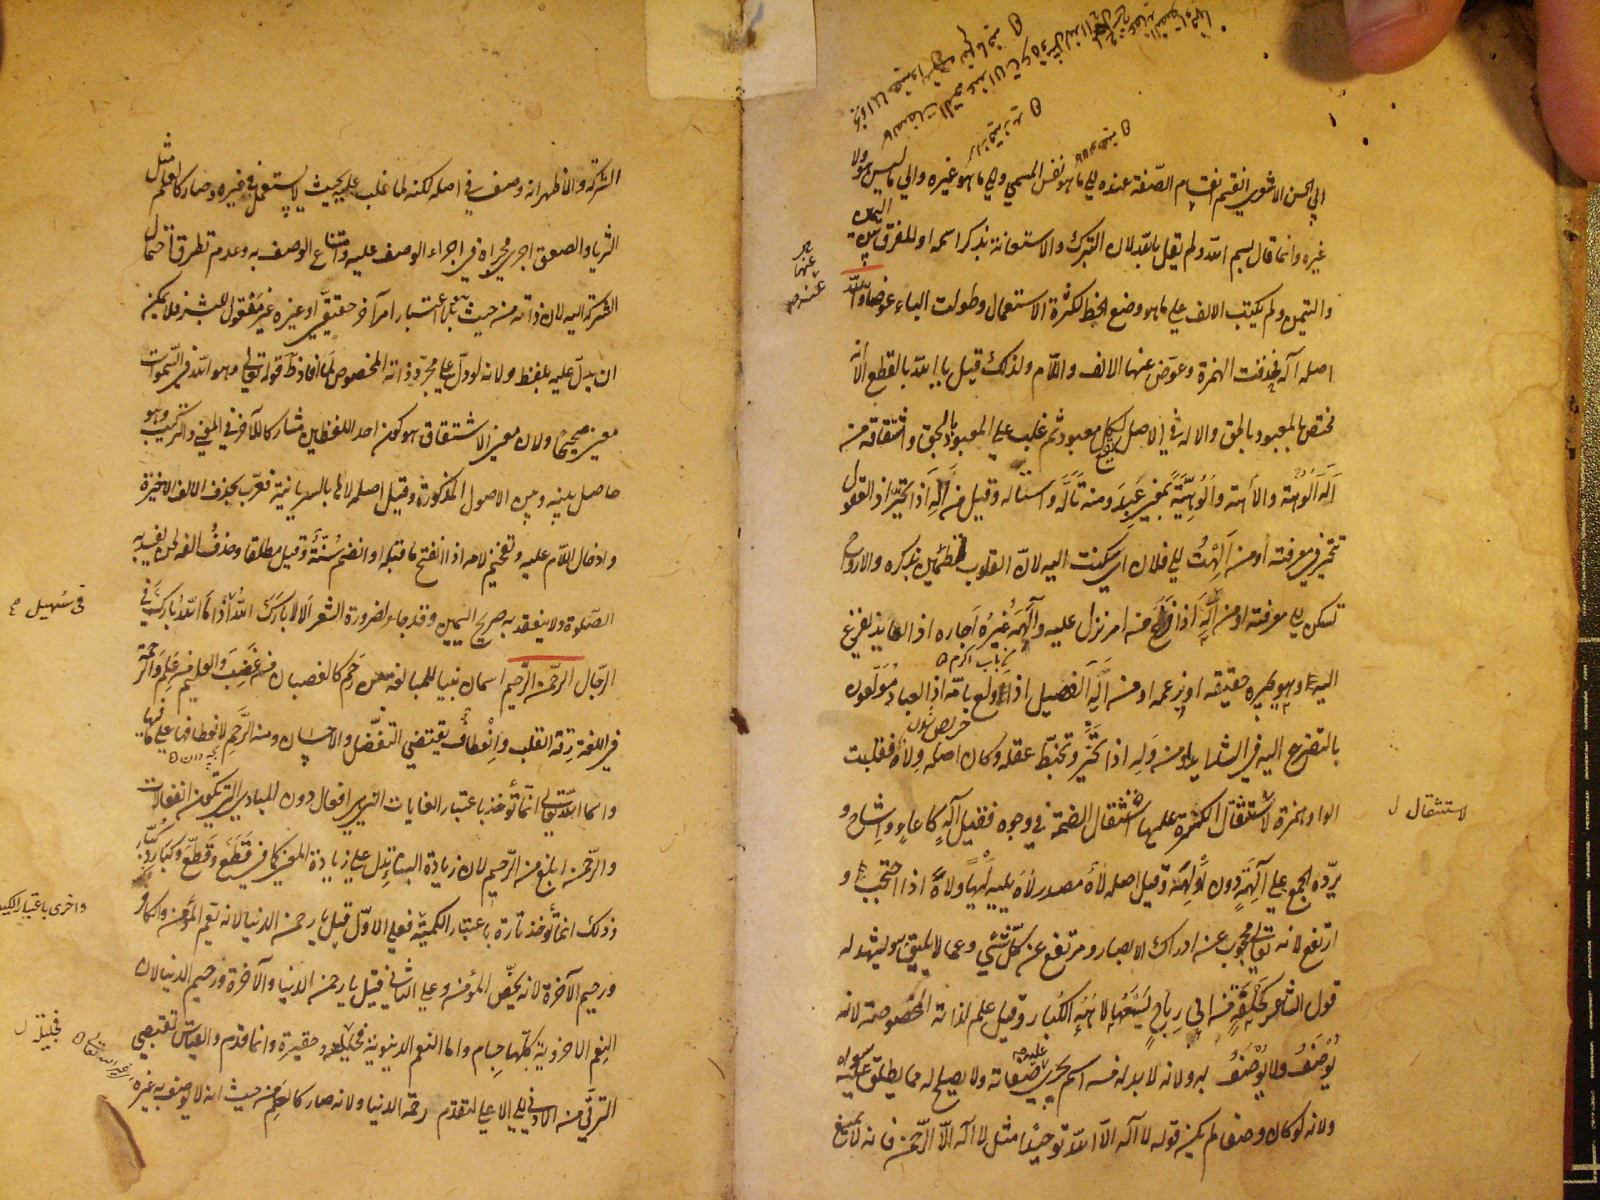 ابي الحسن الاشعري انقسم انقسام الصفة عنده الي ما هو نفس المسمي والي ما هو غيره والي ما ليس هو ولا
غيره وانما قال بسم الله ولم يقل بالله لان التبرك والاستعانة بذكر اسمه او للفرق بين اليمين
والتيمن ولم يكتب الالف علي ما هو وضع الخط لكثرة الاستعمال وطولت الباء عوضا والله
اصله اله فحذفت الهمزة وعوض عنها الالف واللام ولذلك قيل يا الله بالقطع الا انه
مختص بالمعبود بالحق والاله في الاصل لكل معبود ثم غلب علي المعبود بالحق واشتقاقه من
اَلَهَ اُلُوهَة والاهة واُلُوهِيَّةً بمعني عَبَدَ ومنه تَأَلَّهَ واستأله وقيل من اَلِهَ اذا تحيّر اذ العقول
تتحير في معرفته او من اَلِهْتُ الي فلان اي سكنت اليه لان القلوب تطمئن بذكره والارواح
تسكن الي معرفته او من اَلِهَ اذا فزع من امر نزل عليه وآلَهَهُ غيرُه اجاره اذ العايذ يفزع
اليه وهو يجيره حقيقة او بزعمه او من اَلِهَ الفصيل اذا ولع بامّه اذ العباد مولعون
من باب اكرم
حريص شدن
بالتضرع اليه في الشدايد او من وَلِهَ اذا تحيّر وتخبّط عقله وكان اصله وِلاهٌ فقلبت
الواو همزة لاستثقال الكسرة عليها استثقال الضمة في وجوه فقيل اِلهٌ كاعاءٍ واشاح و
لاستثقال
يردّه الجمع علي آلِهَةٍ دون اولهة وقيل اصله لاهٌ مصدر لاه يليه لَيْهًا ولاهًا اذا احتجب و
ارتفع لانه تعالي محجوب عن ادراك الابصار ومرتفع عن كل شئ وعما لا يليق به ويشهد له
قول الشاعر كَحَلْفَةٍ من ابي رباحٍ يَسْمَعُها لاهُهُ الكُبار وقيل علم لذاته المخصوصة لانه
يُوصَفُ ولا يُوصَفُ به ولانه لا بد له من اسم يجري عليه صفاته ولا يصلح له مما يطلق عليه سواه
ولانه لو كان وصفا لم يكن قوله لا اله الا الله توحيدًا مثل لا اله الا الرحمن فانه لا يمنع
الشركة والاظهر انه وصف في اصله لكنه لما غلب عليه بحيث لا يستعمل في غيره وصار كالعلم مثل
الثريا والصعق اجري مجراه في اجراء الوصف عليه وامتناع الوصف به وعدم تطرق احتمال
الشركة اليه لان ذاته من حيث هو بلا اعتبار امر آخر حقيقي او غيره غير معقول للبشر فلا يمكن
ان يدل عليه بلفظ ولانه لو دل علي مجرد ذاته المخصوص لما افاد ظاهر قوله تعالي وهو الله في السموات
معني صحيحا ولان معني الاشتقاق هو كون احد اللفظين مشاركا للآخر في المعني والتركيب وهو
حاصل بينه وبين الاصول المذكورة وقيل اصله لاها بالسريانية فعرب بحذف الالف الاخيرة
وادخال اللام عليه وتفخيم لامه اذا انفتح ما قبله او انضم سُنّةٌ وقيل مطلقا وحذفُ الفه لحن يفسد به
الصلوة ولا ينعقد به صريح اليمين وقد جاء لضرورة الشعر الا لا بارك اللهُ في سهيل اذا ما الله بارك في
في سهيل
الرجال الرحمن الرحيم اسمان بنيا للمبالغة من رحم كالغضبان من غَضِبَ والعليم من عَلِمَ والرحمة
في اللغة رقة القلب وانعطاف يقتضي التفضل والاحسان ومنه الرَّحِم لانعطافها علي ما فيها
واسماء الله تعالي انما تؤخذ باعتبار الغايات التي هي افعال دون المبادي التي تكون انفعالات
والرحمن ابلغ من الرحيم لان زيادة البناء تدل علي زيادة المعني كما في قَطَعَ وقَطَّعَ وكبار وكُبّار
وذلك انما تؤخذ تارة باعتبار الكمية فعلي الاول قيل يا رحمن الدنيا لانه يعم المؤمن والكافر
واخري باعتبار الكيف
ورحيم الآخرة لانه يخص المؤمن وعلي الثاني قيل يا رحمن الدنيا والآخرة ورحيم الدنيا لان
النعم الاخروية كلها جسام واما النعم الدنيوية فجليلة وحقيرة وانما قدم والقياس يقتضي
فجليلة
الترقي من الادني الي الاعلي لتقدم رحمة الدنيا ولانه صار كالعلم من حيث انه لا يوصف به غيره